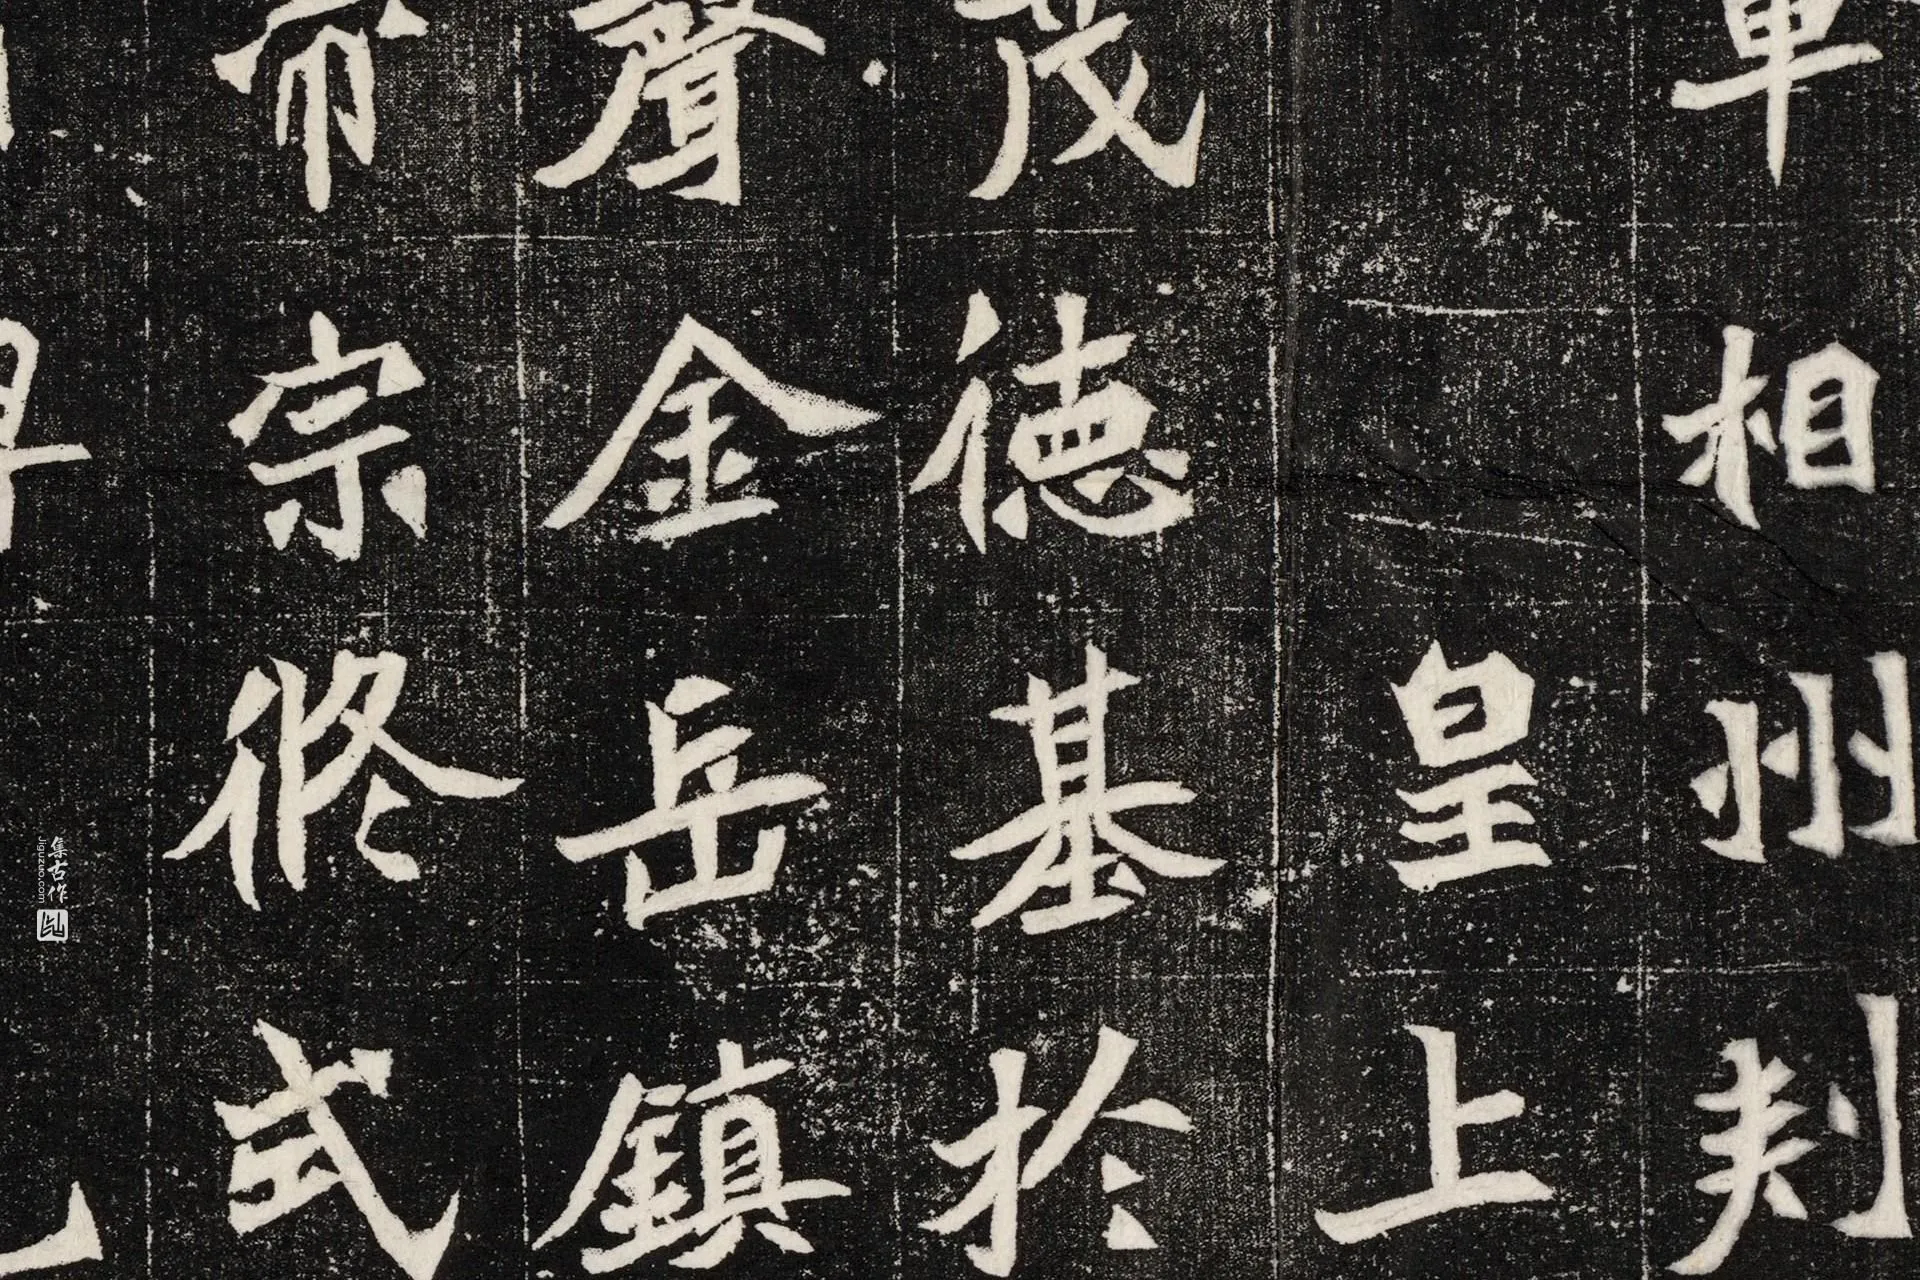 相州刾
皇上
茂德基於
聲金岳鎮
宗修式
集古作
jiguzuo.com